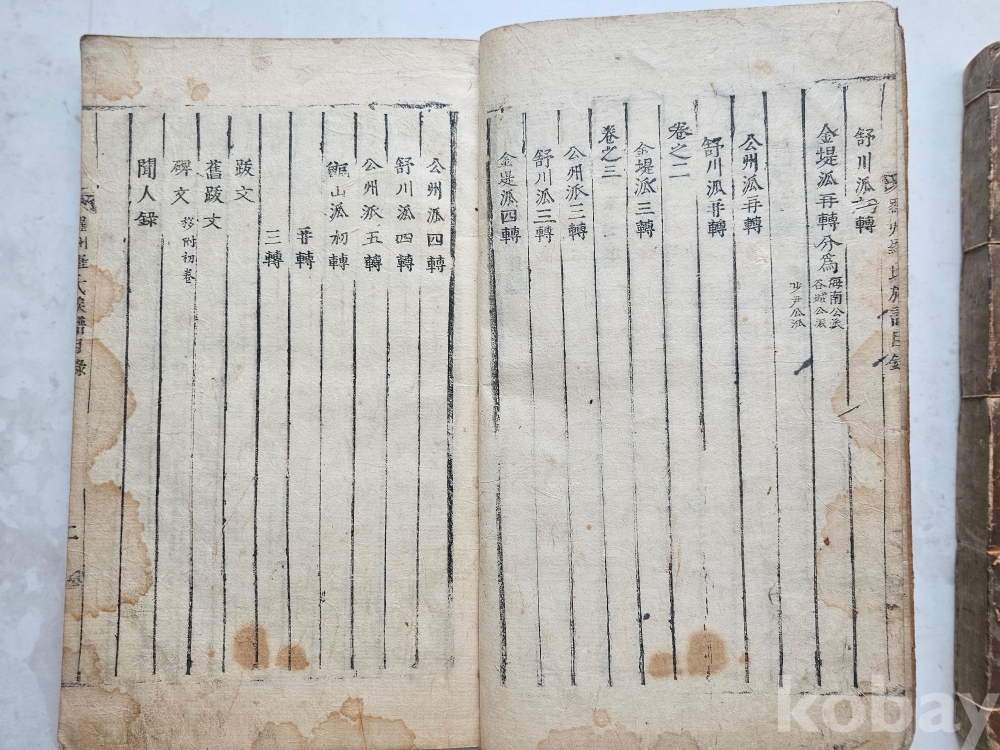 羅州羅氏族譜目錄
舒川派 轉
金堤派再轉分爲
海南公派
城公派
少尹公派
公州派再轉
舒川派再轉
卷之二
金堤派三轉
卷之三
公州派三轉
舒川派三轉
金堤派四轉
公州派四轉
舒川派四轉
公州派五轉
山派初轉
再轉
三轉
跋文
舊跋文
碑文 移附初卷
聞人録
羅州羅氏族譜目錄
二
kobay